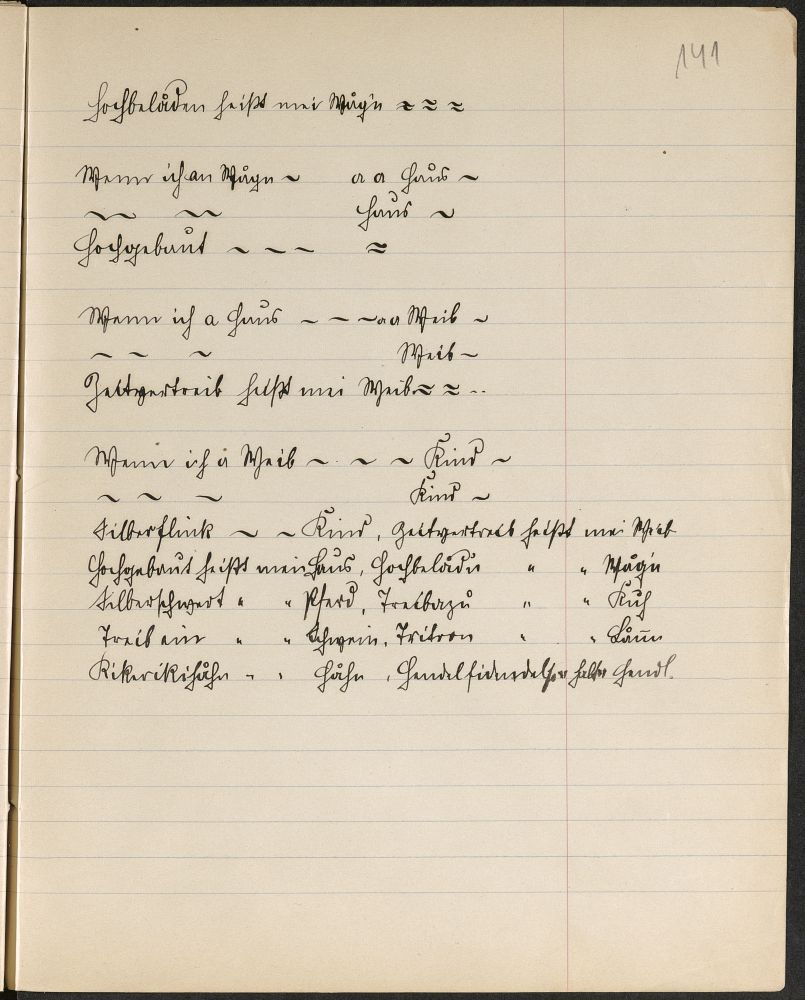 141
Hochbelåden heißt mei Wågn ≈ ≈ ≈
Wenn ich an Wågn ~ a a Haus ~
~ ~ Haus ~
Hochgebaut ~ ~ ~ ≈
Wenn ich a Haus ~ ~ ~ a a Weib ~
~ ~ ~ Weib ~
Zeitvertreib heißt mei Weib ≈ ≈ ..
Wenn ich a Weib ~ ~ ~ Kind ~
~ ~ ~ Kind ~
Silberflink ~ ~ Kind, Zeitvertreib heißt mei Weib
Hochgebaut heißt mein Haus, Hochbelådn " " Wågn
Silberschwert " " Pferd, Treibazu " " Kuh
Treib ein " " Schwein, Tritron " "
Kikerikihåhn " " Håhn, halter Hendl.